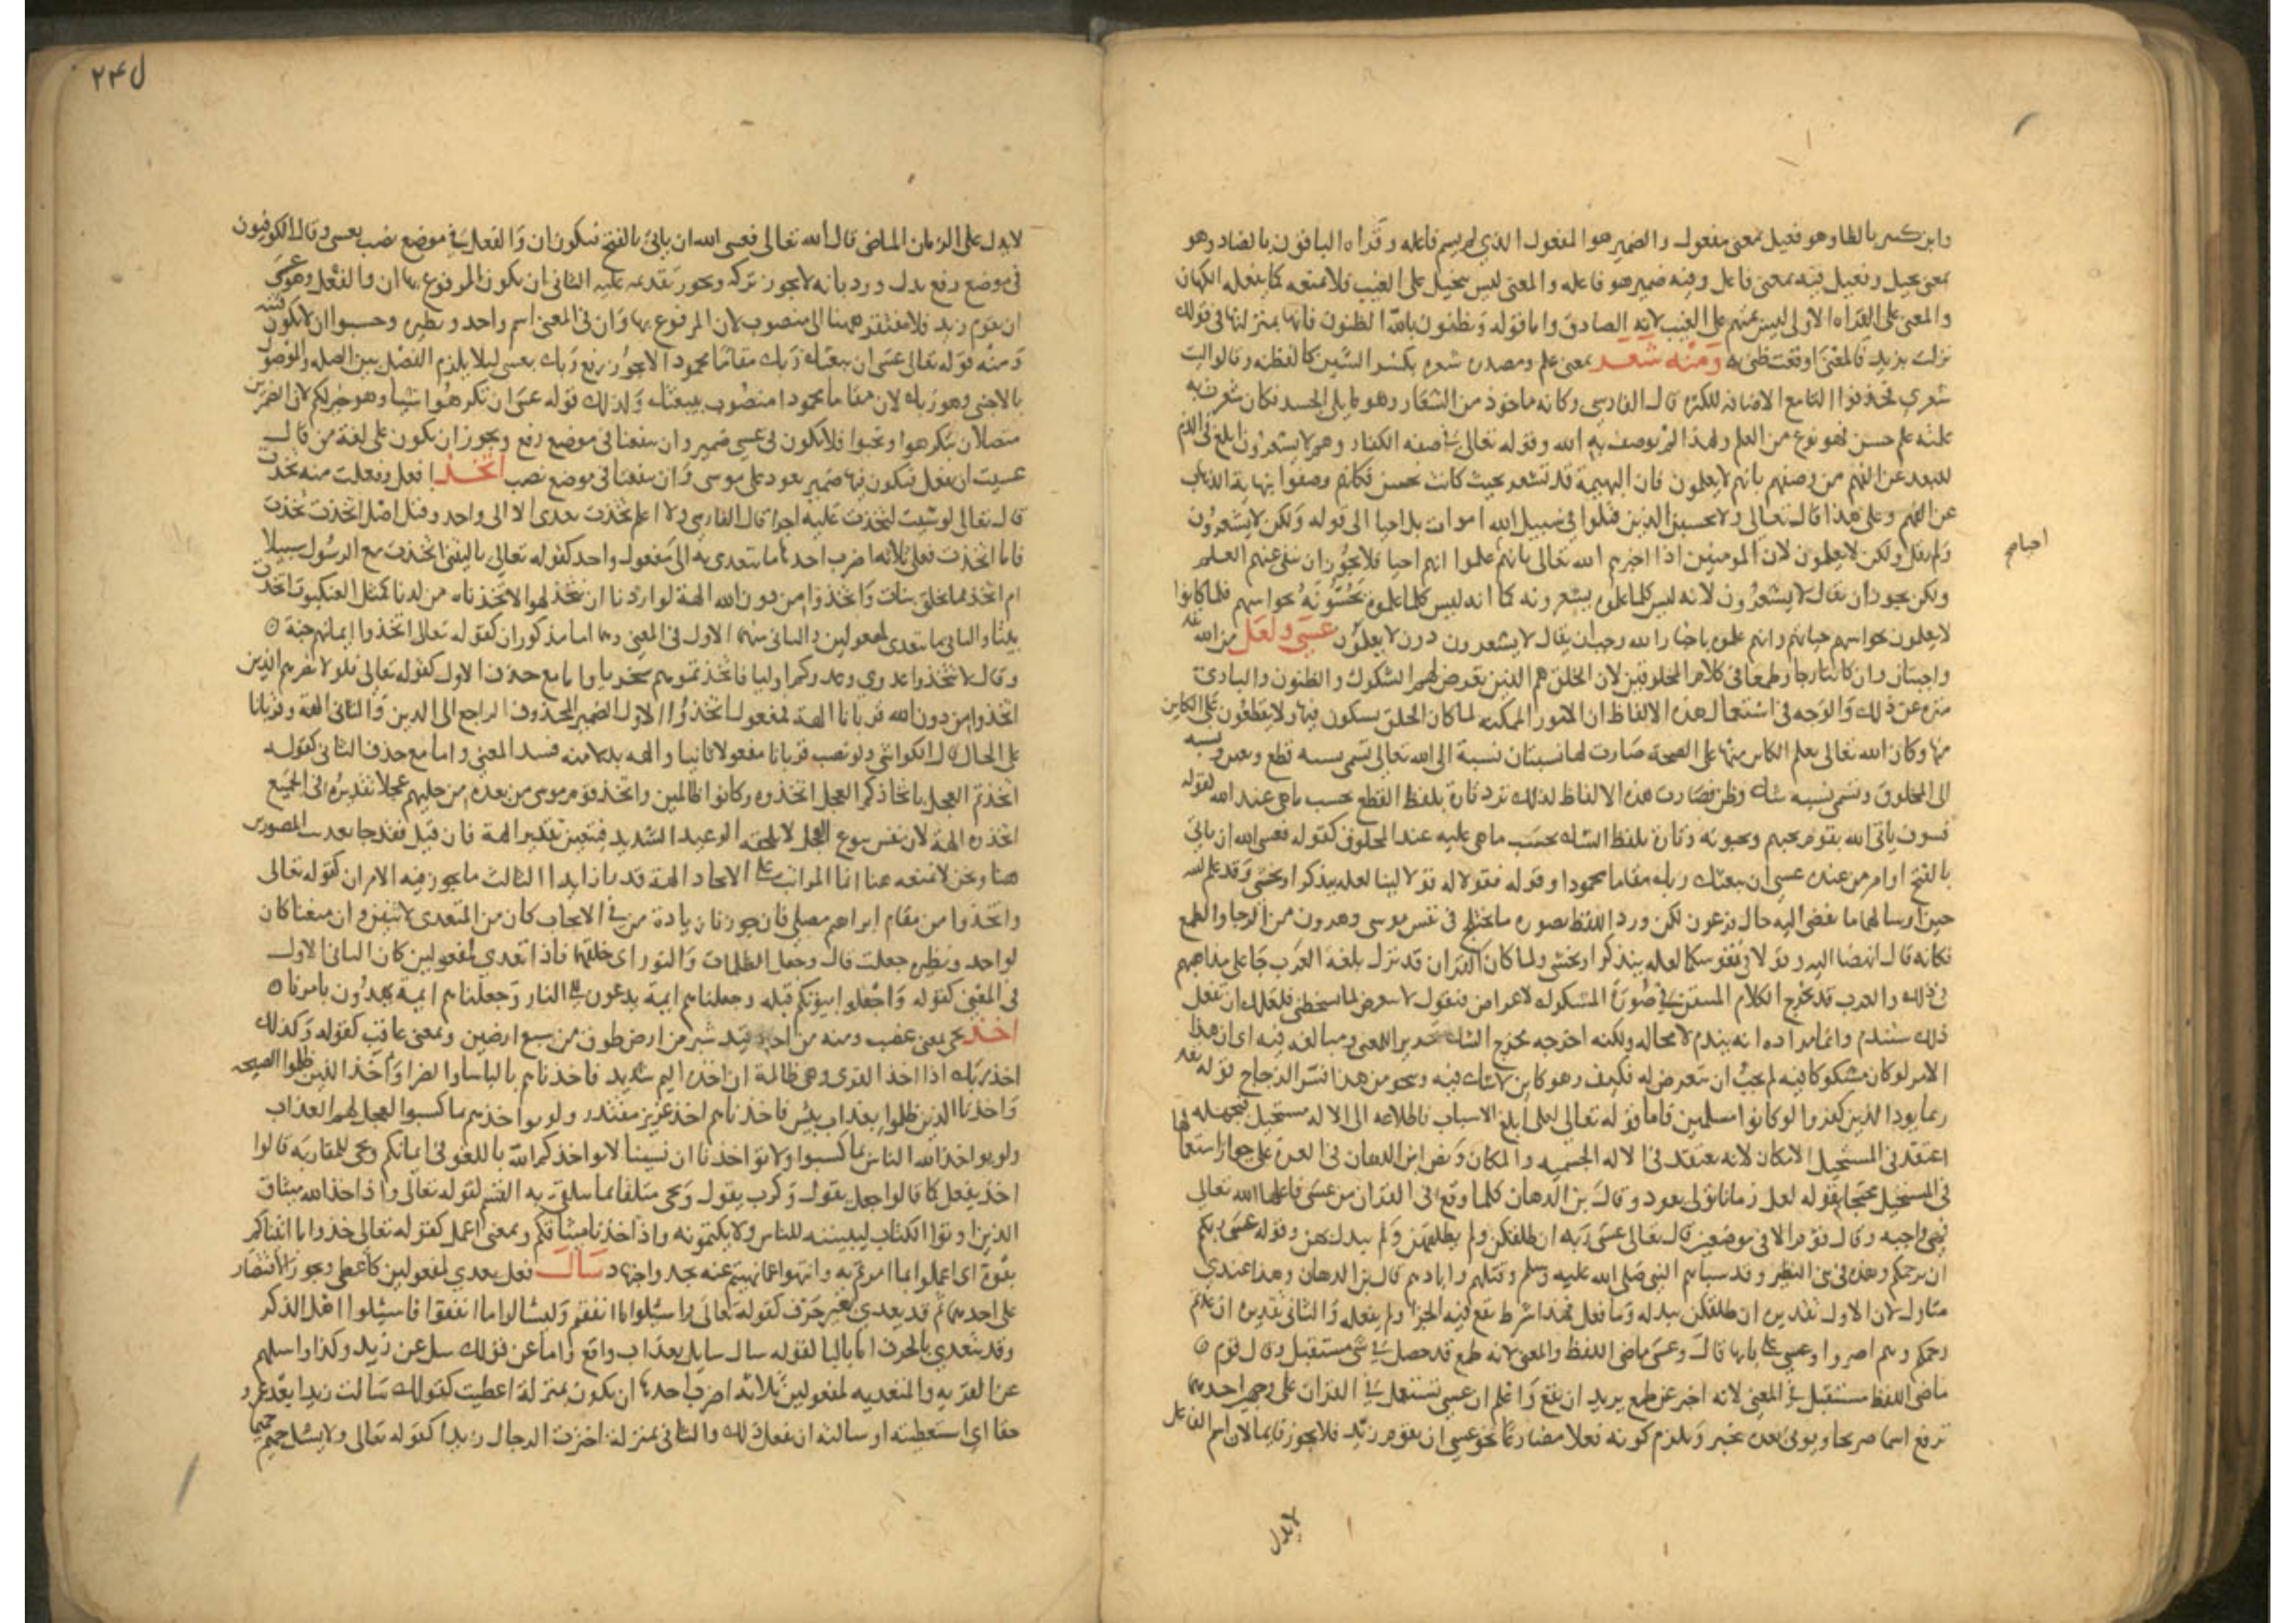 وابن كثير بالظا وهو فعيل بمعنى مفعول والضمير هو المفعول الذي لم يسم فاعله وقراه الباقون بالضاد وهو
بمعنى بخيل وفعيل فيه بمعنى فاعل وفيه ضمير هو فاعله والمعنى ليس ببخيل على الغيب فلا يمنعه كما يفعله الكهان
والمعنى على القراه الاولى ليس بمتهم على الغيب لانه الصادق واما قوله وتظنون بالله الظنونا فانها بمنزلتها في قولك
نزلت بزيد فالمعنى اوقعت ظنى به ومنه شعر بمعنى علم ومصدره شعره بكسر الشين كالفطنه وقالوا ليت
شعري فحذفوا التا مع الاضافه للكثره قال الفارسي وكانه ماخوذ من الشعار وهو ما يلى الجسد فكان شعرت به
علمته علم حسن فهو نوع من العلم ولهذا لم يوصف به الله وقوله تعالى في صفه الكفار وهم لا يشعرون ابلغ في الذم
للبعد عن الفهم من وصفهم بانهم لا يعلمون فان البهيمة قد تشعر بحيث كانت تحس فكانهم وصفوا بنهاية الذهاب
عن الفهم وعلى هذا قال تعالى ولا تحسبن الذين قتلوا في سبيل الله اموات بل احيا الى قوله ولكن لا يشعرون
ولم يقل ولكن لا يعلمون لان المومنين اذا اخبرهم الله تعالى بانهم علموا انهم احيا فلا يجوز ان ينفى عنهم العلم
ولكن يجوز ان يقال لا يشعرون لانه ليس كلما علموه يشعرونه كما انه ليس كلما علموه يحسونه بحواسهم فلما كانوا
لا يعلمون بحواسهم حياتهم وانهم علموه باخبار الله وجب ان يقال لا يشعرون دون لا يعلمون عسى ولعل من الله
واجبتان وان كانتا رجا وطمعا في كلام المخلوقين لان الخلق هم الذين يعرض لهم الشكوك والظنون والبارئ
منزه عن ذلك والوجه في استعمال هذه الالفاظ ان الامور الممكنه لما كان الخلق يشكون فيها ولا يقطعون على الكاين
منها وكان الله تعالى يعلم الكاين منها على الصحة صارت لها نسبتان نسبة الى الله تعالى تسمى نسبه قطع ويقين ونسبه
الى المخلوق وتسمى نسبه شك وظن فصارت هذه الالفاظ لذلك ترد تارة بلفظ القطع بحسب ما هي عند الله كقوله
فسوف ياتي الله بقوم يحبهم ويحبونه وتارة بلفظ الشك بحسب ما هي عليه عند المخلوق كقوله فعسى الله ان ياتي
بالفتح او امر من عنده عسى ان يبعثك ربك مقاما محمودا وقوله فقولا له قولا لينا لعله يتذكر او يخشى وقد علم الله
حين ارسالهما ما يفضي اليه حال فرعون لكن ورد اللفظ بصوره ما يختلج في نفس موسى وهرون من الرجا والطمع
فكانه قال انهضا اليه وقولا في نفوسكما لعله يتذكر او يخشى ولما كان القران قد نزل بلغة العرب جا على مذاهبهم
في ذلك والعرب قد تخرج الكلام المتيقن في صورة المشكوك لاغراض فتقول لا تتعرض لما يسخطني فلعلك ان تفعل
ذلك ستندم وانما مراده انه يندم لا محاله ولكنه اخرجه مخرج الشك تحريرا للمعنى ومبالغه فيه اى ان هذا
الامر لو كان مشكوكا فيه لم يجب ان تتعرض له فكيف وهو كاين لا شك فيه وبنحو من هذا فسر الزجاج قوله تعالى
ربما يود الذين كفروا لو كانوا مسلمين فاما قوله تعالى لعلى ابلغ الاسباب فاطلاعه الى الاله مستحيل فبجهله
اعتقد في المستحيل الامكان لانه يعتقد في الاله الجسميه والمكان ونص ابن الدهان في الغرة على جواز استعمالها
في المستحيل محتجا بقوله لعل زمانا تولى يعود وقال بن الدهان كلما وقع في القران من عسى فاعلها الله تعالى
فهى واجبه وقال قوم الا في موضعين قال تعالى عسى ربه ان طلقكن ولم يطلقهن ولم يبدل بهن وقوله عسى ربكم
ان يرحمكم وهذه في بنى النظير وقد سباهم النبي صلى الله عليه وسلم وقتلهم وابادهم قال بن الدهان وهذا عندي
متاول لان الاول تقديره ان طلقكن يبدله وما فعل فهذا شرط يقع فيه الجزا ولم يفعله والثاني تقديره ان عدتم
رحمكم وهم اصروا وعسى على بابها قال وعسى ماضي اللفظ والمعنى لانه طمع قد حصل في شي مستقبل وقال قوم
ماضي اللفظ مستقبل في المعنى لانه اخبر عن طمع يريد ان يقع واعلم ان عسى تستعمل في القران على وجهين احدهما
ترفع اسما صريحا ويوتى بعده بخبر ويلزم كونه فعلا مضارعا نحو عسى ان يقوم زيد فلا يجوز قايما لان اسم الفاعل
لا يدل
ل ٢٤
لا يدل على الزمان الماضي قال الله تعالى فعسى الله ان ياتي بالفتح فيكون ان والفعل في موضع نصب بعسى وقال الكوفيون
في موضع رفع بدل ورد بانه لا يجوز تركه ويجوز تقديمه عليه الثاني ان يكون المرفوع بها ان والفعل وهو عسى
ان يقوم زيد فلا مفتقر ههنا الى منصوب لان المرفوع بها وان في المعنى اسم واحد ونظيره وحسبوا ان لا تكون فتنه
ومنه قوله تعالى عسى ان يبعثك ربك مقاما محمودا لا يجوز رفع ربك بعسى ليلا يلزم الفصل بين الصله والموصول
بالاجنبي وهو ربك لان مقاما محمودا منصوب بيبعثك ولذلك قوله عسى ان تكرهوا شيئا وهو خير لكم لان الضميرين
متصلان بتكرهوا وتحبوا فلا يكون في عسى ضمير وان ينفعنا في موضع رفع ويجوز ان يكون على لغة من قال
عسيت ان تفعل فيكون فيها ضمير يعود على موسى وان ينفعنا في موضع نصب اتخذ افعل وفعلت منه تخذت
قال تعالى لو شئت لتخذت عليه اجرا قال الفارسي ولا اعلم تخذت تعدى الا الى واحد وقيل اصل اتخذت تخذت
فاما اتخذت فعلى ثلاثه اضرب احدها ما يتعدى به الى مفعول واحد كقوله تعالى يا ليتني اتخذت مع الرسول سبيلا
ام اتخذ مما يخلق بنات واتخذوا من دون الله الهة لو اردنا ان نتخذ لهوا لاتخذناه من لدنا كمثل العنكبوت اتخذت
بيتا والثاني ما يتعدى لمفعولين والثاني منهما الاول في المعنى وهما اما مذكوران كقوله تعالى اتخذوا ايمانهم جنة
وقال لا تتخذوا عدوي وعدوكم اوليا فاتخذتموهم سخريا واما مع حذف الاول كقوله تعالى فلولا نصرهم الذين
اتخذوا من دون الله قربانا الهة فمفعول اتخذوا الاول الضمير المحذوف الراجع الى الذين والثاني الهة وقربانا
على الحال قال الكواشي ولو نصب قربانا مفعولا ثانيا والهه بدلا منه فسد المعنى واما مع حذف الثاني كقوله
اتخذتم العجل باتخاذكم العجل اتخذوه وكانوا ظالمين واتخذ قوم موسى من بعده من حليهم عجلا تقديره في الجميع
اتخذوه الهة لان نفس العجل لا يلحقه الوعيد الشديد فيتعين تقدير الهة فان قيل
واتخذوا من مقام ابراهيم مصلى فان جوزنا زيادة من في الايجاب كان من المتعدى لاثنين وان منعنا كان
لواحد ونظيره جعلت قال وجعل الظلمات والنور اى خلقهما فاذا تعدى لمفعولين كان الثاني الاول
في المعنى كقوله واجعلوا بيوتكم قبله وجعلناهم ايمة يدعون الى النار وجعلناهم ايمة يهدون بامرنا
اخذ تجى بمعنى غصب ومنه من اخذ قيد شبر من ارض طوق من سبع ارضين وبمعنى عاقب كقوله وكذلك
اخذ ربك اذا اخذ القرى وهى ظالمة ان اخذه اليم شديد فاخذناهم بالباسا والضرا واخذ الذين ظلموا الصيحه
واخذنا الذين ظلموا بعذاب بيئس فاخذناهم اخذ عزيز مقتدر ولو يواخذهم بما كسبوا لعجل لهم العذاب
ولو يواخذ الله الناس بما كسبوا ولا تواخذنا ان نسينا لا يواخذكم الله باللغو في ايمانكم وتجى للمقاربه قالوا
اخذ يفعل كما قالوا جعل يقول وكرب يقول وتجى متلقاة بما يتلقى به القسم كقوله تعالى واذ اخذ الله ميثاق
الذين اوتوا الكتاب ليبيننه للناس ولا يكتمونه واذ اخذنا ميثاقكم وبمعنى اعمل كقوله تعالى خذوا ما اتيناكم
بقوة اى اعملوا بما امرتم به وانتهوا عما نهيتم عنه بجد واجتهاد سال فعل يتعدى لمفعولين كاعطى ويجوز الاقتصار
على احدهما ثم قد يتعدى بغير حرف كقوله تعالى واسئلوا ما انفقتم وليسئلوا ما انفقوا فاسئلوا اهل الذكر
وقد يتعدى بالحرف اما بالبا كقوله سال سايل بعذاب واقع واما عن كقولك سل عن زيد وكذا واسئلهم
عن القريه والمتعديه لمفعولين ثلاثه اضرب احدها ان يكون بمنزلة اعطيت كقولك سالت زيدا بعد عمرو
حقا اى استعطيته او سالته ان يفعل ذلك والثاني بمنزله اخترت الرجال زيدا كقوله تعالى ولا يسئل حميم حميما